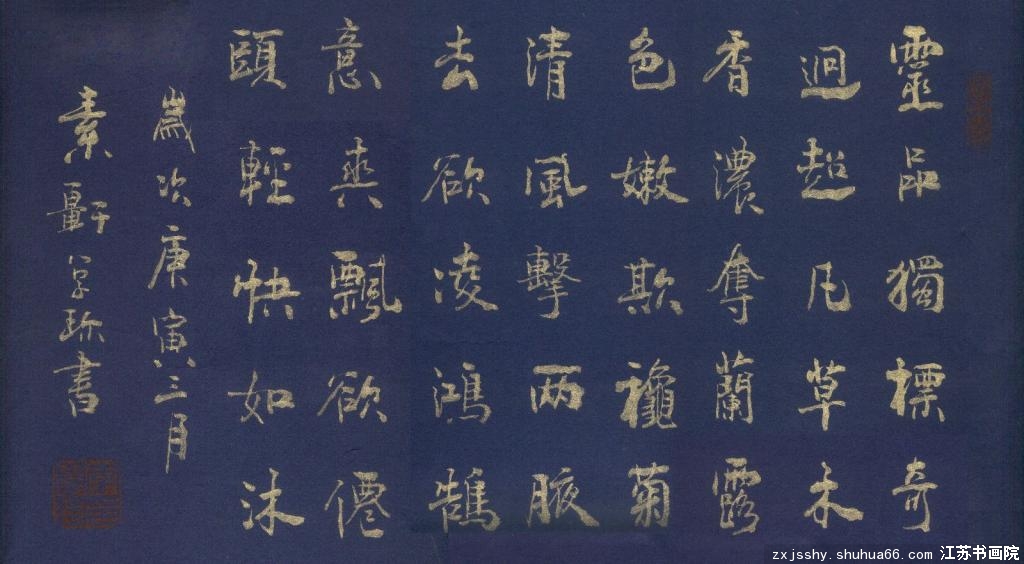 靈品獨標奇
迥超凡草木
香濃奪蘭露
色嫩欺秋菊
清風擊兩腋
去欲凌鴻鵠
意爽飄欲僊
頭輕快如沐
歲次庚寅三月
素軒 書
zxjsshy.shuhua66.com 江苏书画院